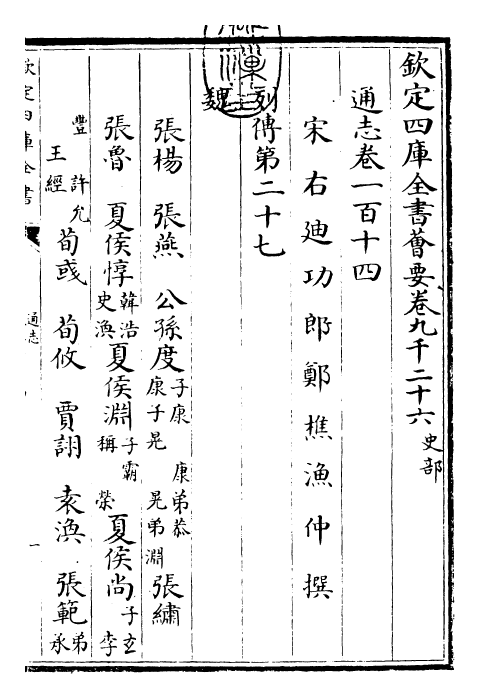 欽定四庫全書薈要卷九千二十六 史部
通志卷一百十四
宋右廸功郎鄭樵漁仲撰
列傳第二十七
魏
張楊 張燕 公孫度 子康 康子晃 康弟恭 晃弟淵 張繡
張魯 夏侯惇 韓浩 史渙 夏侯淵 子霸 稱 榮 夏侯尚 子玄 李
豐 許允 王經 荀彧 荀攸 賈詡 袁渙 張範 弟承
欽定四庫全書
通志
一